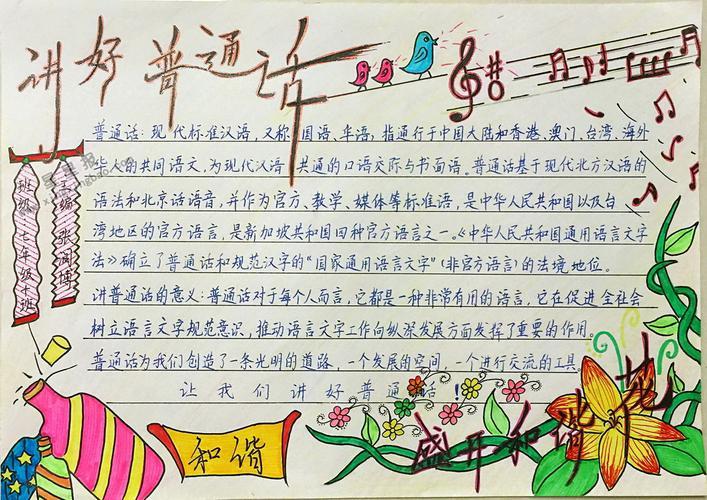 讲好普通话
普通话:现代标准汉语,又称国语、华语,指通行于中国大陆和香港、澳门、台湾、海外
华人的共同语文,为现代汉语共通的口语交际与书面语。普通话基于现代北方汉语的
语法和北京话语音,并作为官方、教学、媒体等标准语,是中华人民共和国以及台
湾地区的官方语言,是新加坡共和国四种官方语言之一。《中华人民共和国通用语言文字
法》确立了普通话和规范汉字的“国家通用语言文字”(非官方语言)的法境地位。
讲普通话的意义:普通话对于每个人而言,它都是一种非常有用的语言,它在促进全社会
树立语言文字规范意识,推动语言文字工作向纵深发展方面发挥了重要的作用。
普通话为我们创造了一条光明的道路,一个发展的空间,一个进行交流的工具
让我们讲好普通话!
班级:七年级十班
主编:张闻博
和谐
盛开和谐花